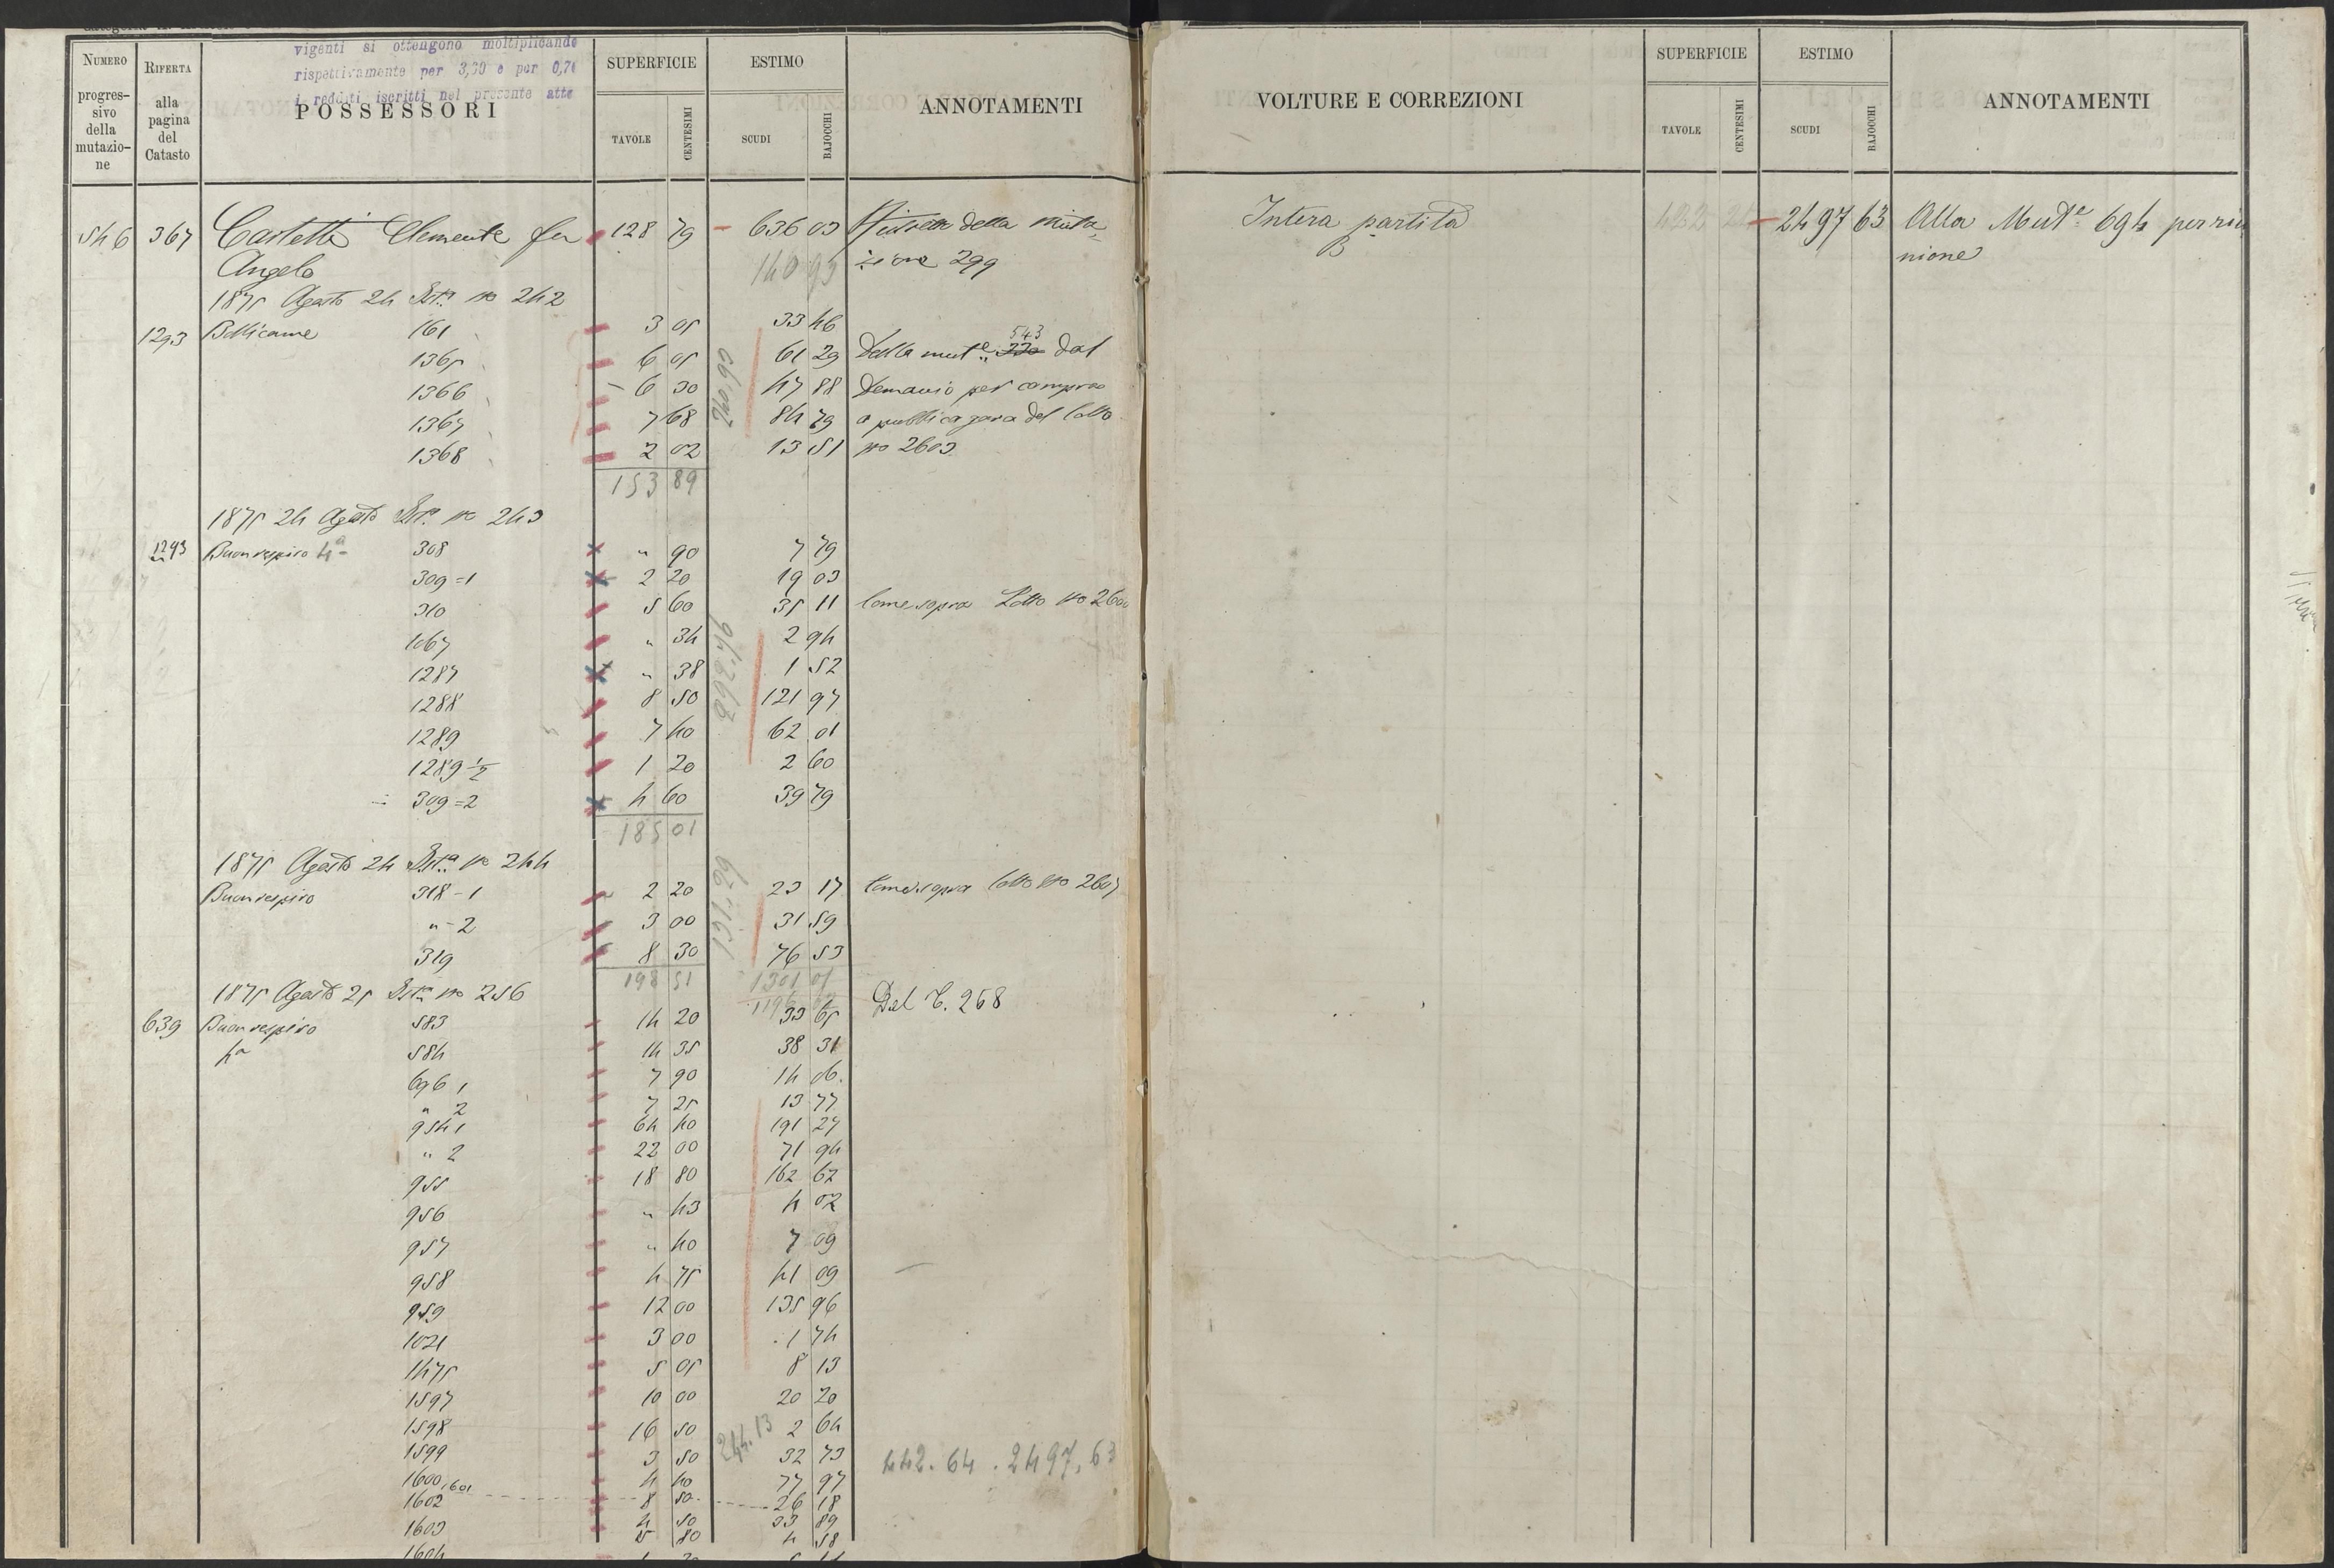 vigenti si ottengono moltiplicando
rispettivamente per 3,30 e per 0,70
i redditi iscritti nel presente atto
NUMERO progres- sivo della mutazio- ne
RIFERTA alla pagina del Catasto
POSSESSORI
SUPERFICIE TAVOLE CENTESIMI
ESTIMO SCUDI BAJOCCHI
ANNOTAMENTI
546 367 Carletti Clemente fu 128 79 636 03 della muta=
Angelo 140 93 zione 299
1875 Agosto 24 No 242
1293 Bollicame 161 3 05 33 46
1365 6 05 61 29 Della mut.e 330 543 dal
1366 6 30 47 88 Demanio per compra
1367 7 68 84 79 a pubblica gara del lotto
1368 2 02 13 51 No 2603
153 89
240,93
1875 24 Agosto No 243
1293 Buonrespiro 4a 308 " 90 7 79
309=1 2 20 19 03
310 5 60 35 11 Come sopra Lotto No
1067 " 34 2 94
1287 " 38 1 52
1288 8 50 121 97
1289 7 40 62 01
1289 1/2 1 20 2 60
309=2 4 60 39 79
185 01
1875 Agosto 24 No 244
Buonrespiro 318-1 2 20 23 17 Come sopra lotto No 2607
"-2 3 00 31 59
319 8 30 76 53
198 51 1301 01
131,29
1875 Agosto 25 No 256
Dal C. 268
639 Buonrespiro 583 14 20 33 65
4a 584 14 35 38 31
696 1 7 90 14 06
" 2 7 25 13 77
954 1 64 40 191 27
" 2 22 00 71 94
955 18 80 162 62
956 " 43 4 02
957 " 40 7 09
958 4 75 41 09
959 12 00 135 96
1021 3 00 1 74
1475 5 05 8 13
1597 10 00 20 20
1598 16 50 2 64
1599 3 50 32 73
244.13
442.64 . 2497,63
1600,1601 4 40 77 97
1602 8 50 26 18
1603 4 50 33 89
5 80 4 58
1604
VOLTURE E CORREZIONI
SUPERFICIE TAVOLE CENTESIMI
ESTIMO SCUDI BAJOCCHI
ANNOTAMENTI
Intera partita 2497 63 Alla Mut.e 694 per riu
nione